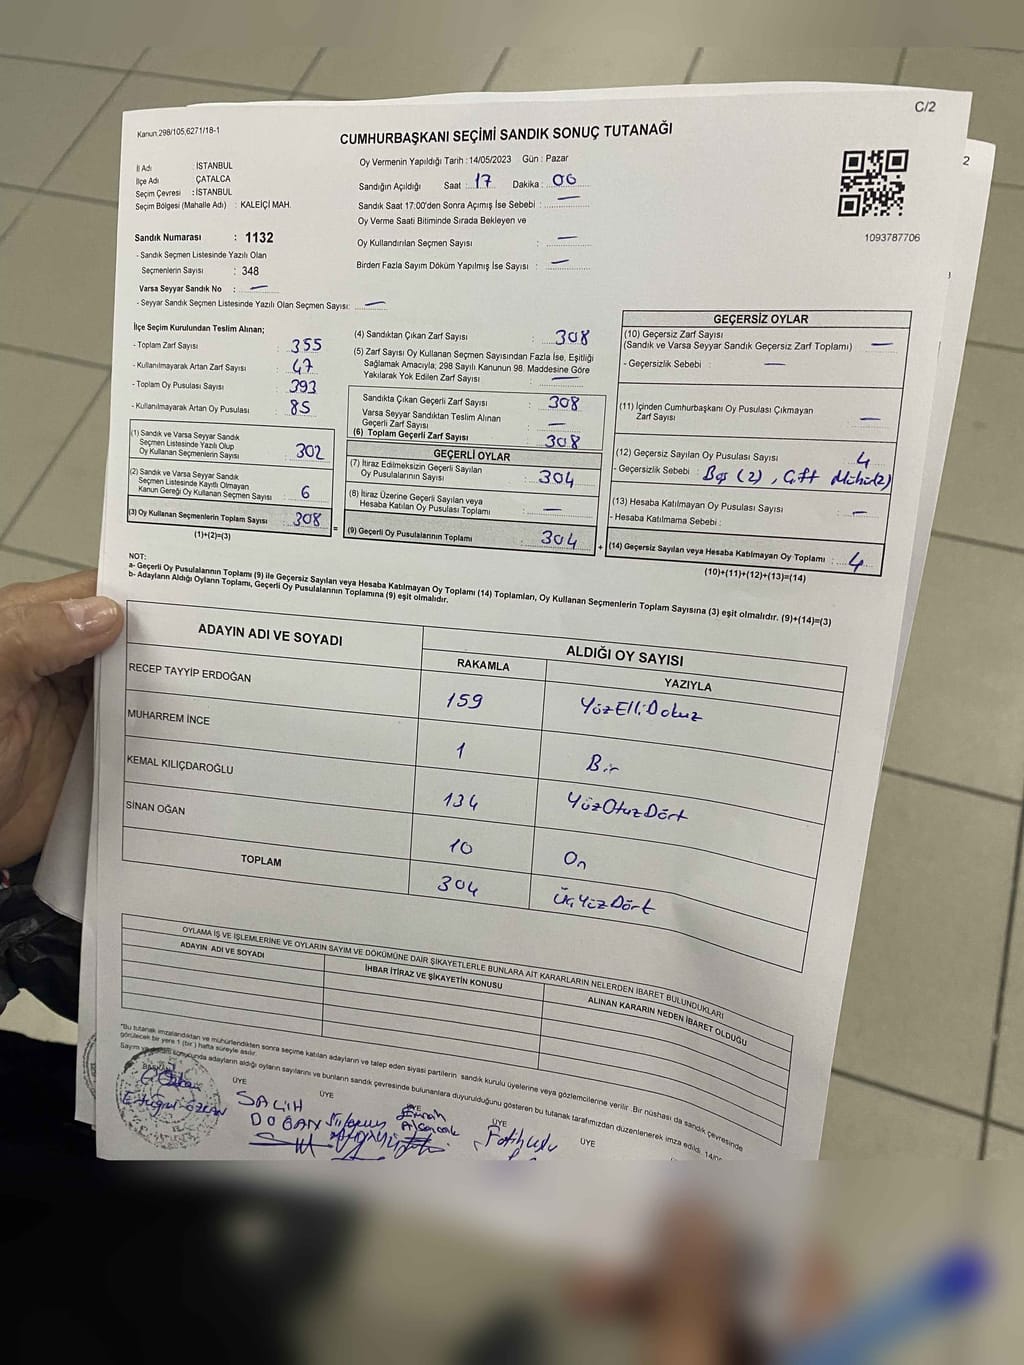 C/2
2
Kanun.298/105,6271/18-1
CUMHURBAŞKANI SEÇİMİ SANDIK SONUÇ TUTANAĞI
İl Adı : İSTANBUL
İlçe Adı ÇATALCA
Seçim Çevresi : İSTANBUL
Seçim Bölgesi (Mahalle Adı) : KALEİÇİ MAH.
Sandık Numarası : 1132
- Sandık Seçmen Listesinde Yazılı Olan
Seçmenlerin Sayısı : 348
Varsa Seyyar Sandık No : —
- Seyyar Sandık Seçmen Listesinde Yazılı Olan Seçmen Sayısı: —
Oy Vermenin Yapıldığı Tarih : 14/05/2023 Gün : Pazar
Sandığın Açıldığı Saat : 17 Dakika : 06
Sandık Saat 17:00'den Sonra Açımış İse Sebebi : —
Oy Verme Saati Bitiminde Sırada Bekleyen ve
Oy Kullandırılan Seçmen Sayısı : —
Birden Fazla Sayım Döküm Yapılmış İse Sayısı : —
1093787706
İlçe Seçim Kurulundan Teslim Alınan;
- Toplam Zarf Sayısı : 355
- Kullanılmayarak Artan Zarf Sayısı : 47
- Toplam Oy Pusulası Sayısı : 393
- Kullanılmayarak Artan Oy Pusulası : 85
(1) Sandık ve Varsa Seyyar Sandık
Seçmen Listesinde Yazılı Olup
Oy Kullanan Seçmenlerin Sayısı : 302
(2) Sandık ve Varsa Seyyar Sandık
Seçmen Listesinde Kayıtlı Olmayan
Kanun Gereği Oy Kullanan Seçmen Sayısı : 6
(3) Oy Kullanan Seçmenlerin Toplam Sayısı : 308
(1)+(2)=(3)
(4) Sandıktan Çıkan Zarf Sayısı : 308
(5) Zarf Sayısı Oy Kullanan Seçmen Sayısından Fazla İse, Eşitliği
Sağlamak Amacıyla; 298 Sayılı Kanunun 98. Maddesine Göre
Yakılarak Yok Edilen Zarf Sayısı : —
Sandıkta Çıkan Geçerli Zarf Sayısı : 308
Varsa Seyyar Sandıktan Teslim Alınan
Geçerli Zarf Sayısı : —
(6) Toplam Geçerli Zarf Sayısı : 308
GEÇERLİ OYLAR
(7) İtiraz Edilmeksizin Geçerli Sayılan
Oy Pusulasının Sayısı : 304
(8) İtiraz Üzerine Geçerli Sayılan veya
Hesaba Katılan Oy Pusulası Toplamı : —
= (9) Geçerli Oy Pusulalarının Toplamı : 304
GEÇERSİZ OYLAR
(10) Geçersiz Zarf Sayısı
(Sandık ve Varsa Seyyar Sandık Geçersiz Zarf Toplamı) —
- Geçersizlik Sebebi : —
(11) İçinden Cumhurbaşkanı Oy Pusulası Çıkmayan
Zarf Sayısı : —
(12) Geçersiz Sayılan Oy Pusulası Sayısı : 4
- Geçersizlik Sebebi : Boş (2), Çift Mühür(2)
(13) Hesaba Katılmayan Oy Pusulası Sayısı : —
- Hesaba Katılmama Sebebi :
+ (14) Geçersiz Sayılan veya Hesaba Katılmayan Oy Toplamı : 4
(10)+(11)+(12)+(13)=(14)
NOT:
a- Geçerli Oy Pusulalarının Toplamı (9) ile Geçersiz Sayılan veya Hesaba Katılmayan Oy Toplamı (14) Toplamları, Oy Kullanan Seçmenlerin Toplam Sayısına (3) eşit olmalıdır. (9)+(14)=(3)
b- Adayların Aldığı Oyların Toplamı, Geçerli Oy Pusulalarının Toplamına (9) eşit olmalıdır.
ADAYIN ADI VE SOYADI ALDIĞI OY SAYISI
RAKAMLA YAZIYLA
RECEP TAYYİP ERDOĞAN 159 YüzElliDokuz
MUHARREM İNCE 1 Bir
KEMAL KILIÇDAROĞLU 134 YüzOtuzDört
SİNAN OĞAN 10 On
TOPLAM 304 ÜçYüzDört
OYLAMA İŞ VE İŞLEMLERİNE VE OYLARIN SAYIM VE DÖKÜMÜNE DAİR ŞİKAYETLERLE BUNLARA AİT KARARLARIN NELERDEN İBARET BULUNDUKLARI
ADAYIN ADI VE SOYADI İHBAR İTİRAZ VE ŞİKAYETİN KONUSU ALINAN KARARIN NEDEN İBARET OLDUĞU
"Bu tutanak imzalandıktan ve mühürlendikten sonra seçime katılan adayların ve talep eden siyasi partilerin sandık kurulu üyelerine veya gözlemcilerine verilir. Bir nüshası da sandık çevresinde
görülecek bir yere 1 (bir) hafta süreyle asılır.
Sayım ve döküm sonucunda adayların aldığı oyların sayılarını ve bunların sandık çevresinde bulunanlara duyurulduğunu gösteren bu tutanak tarafımızdan düzenlenerek imza edildi. 14/
BAŞKAN ÜYE ÜYE ÜYE ÜYE ÜYE
Ertuğrul ÖZKAN
SALİH
DOĞAN